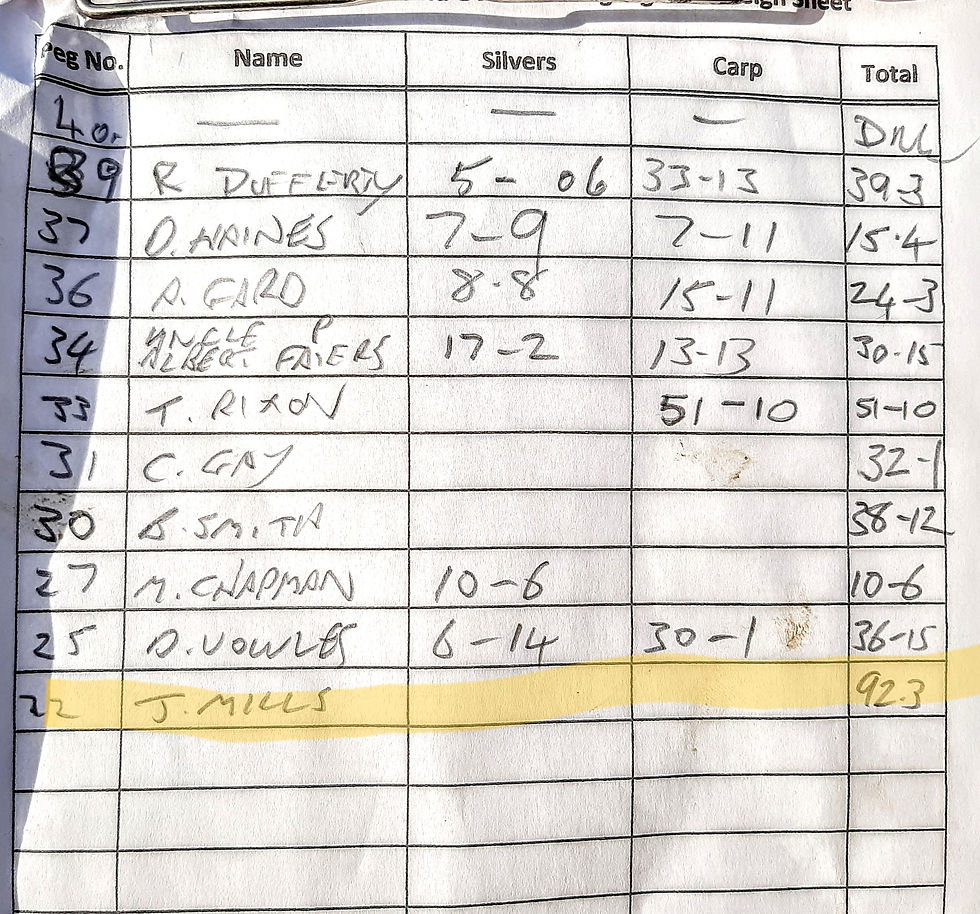 Sheet
Peg No. Name Silvers Carp Total
40. — — — DNW
39 R DUFFERTY 5- 06 33-13 39-3
37 D. HAINES 7-9 7-11 15.4
36 A. GARD 8.8 15-11 24-3
34 UNCLE P
ALBERT FAIERS 17-2 13-13 30-15
33 T. RIXON 51-10 51-10
31 C. GAY 32-1
30 B. SMITH 38-12
27 M. CHAPMAN 10-6 10-6
25 D. VOWLES 6-14 30-1 36-15
22 J. MILLS 92.3